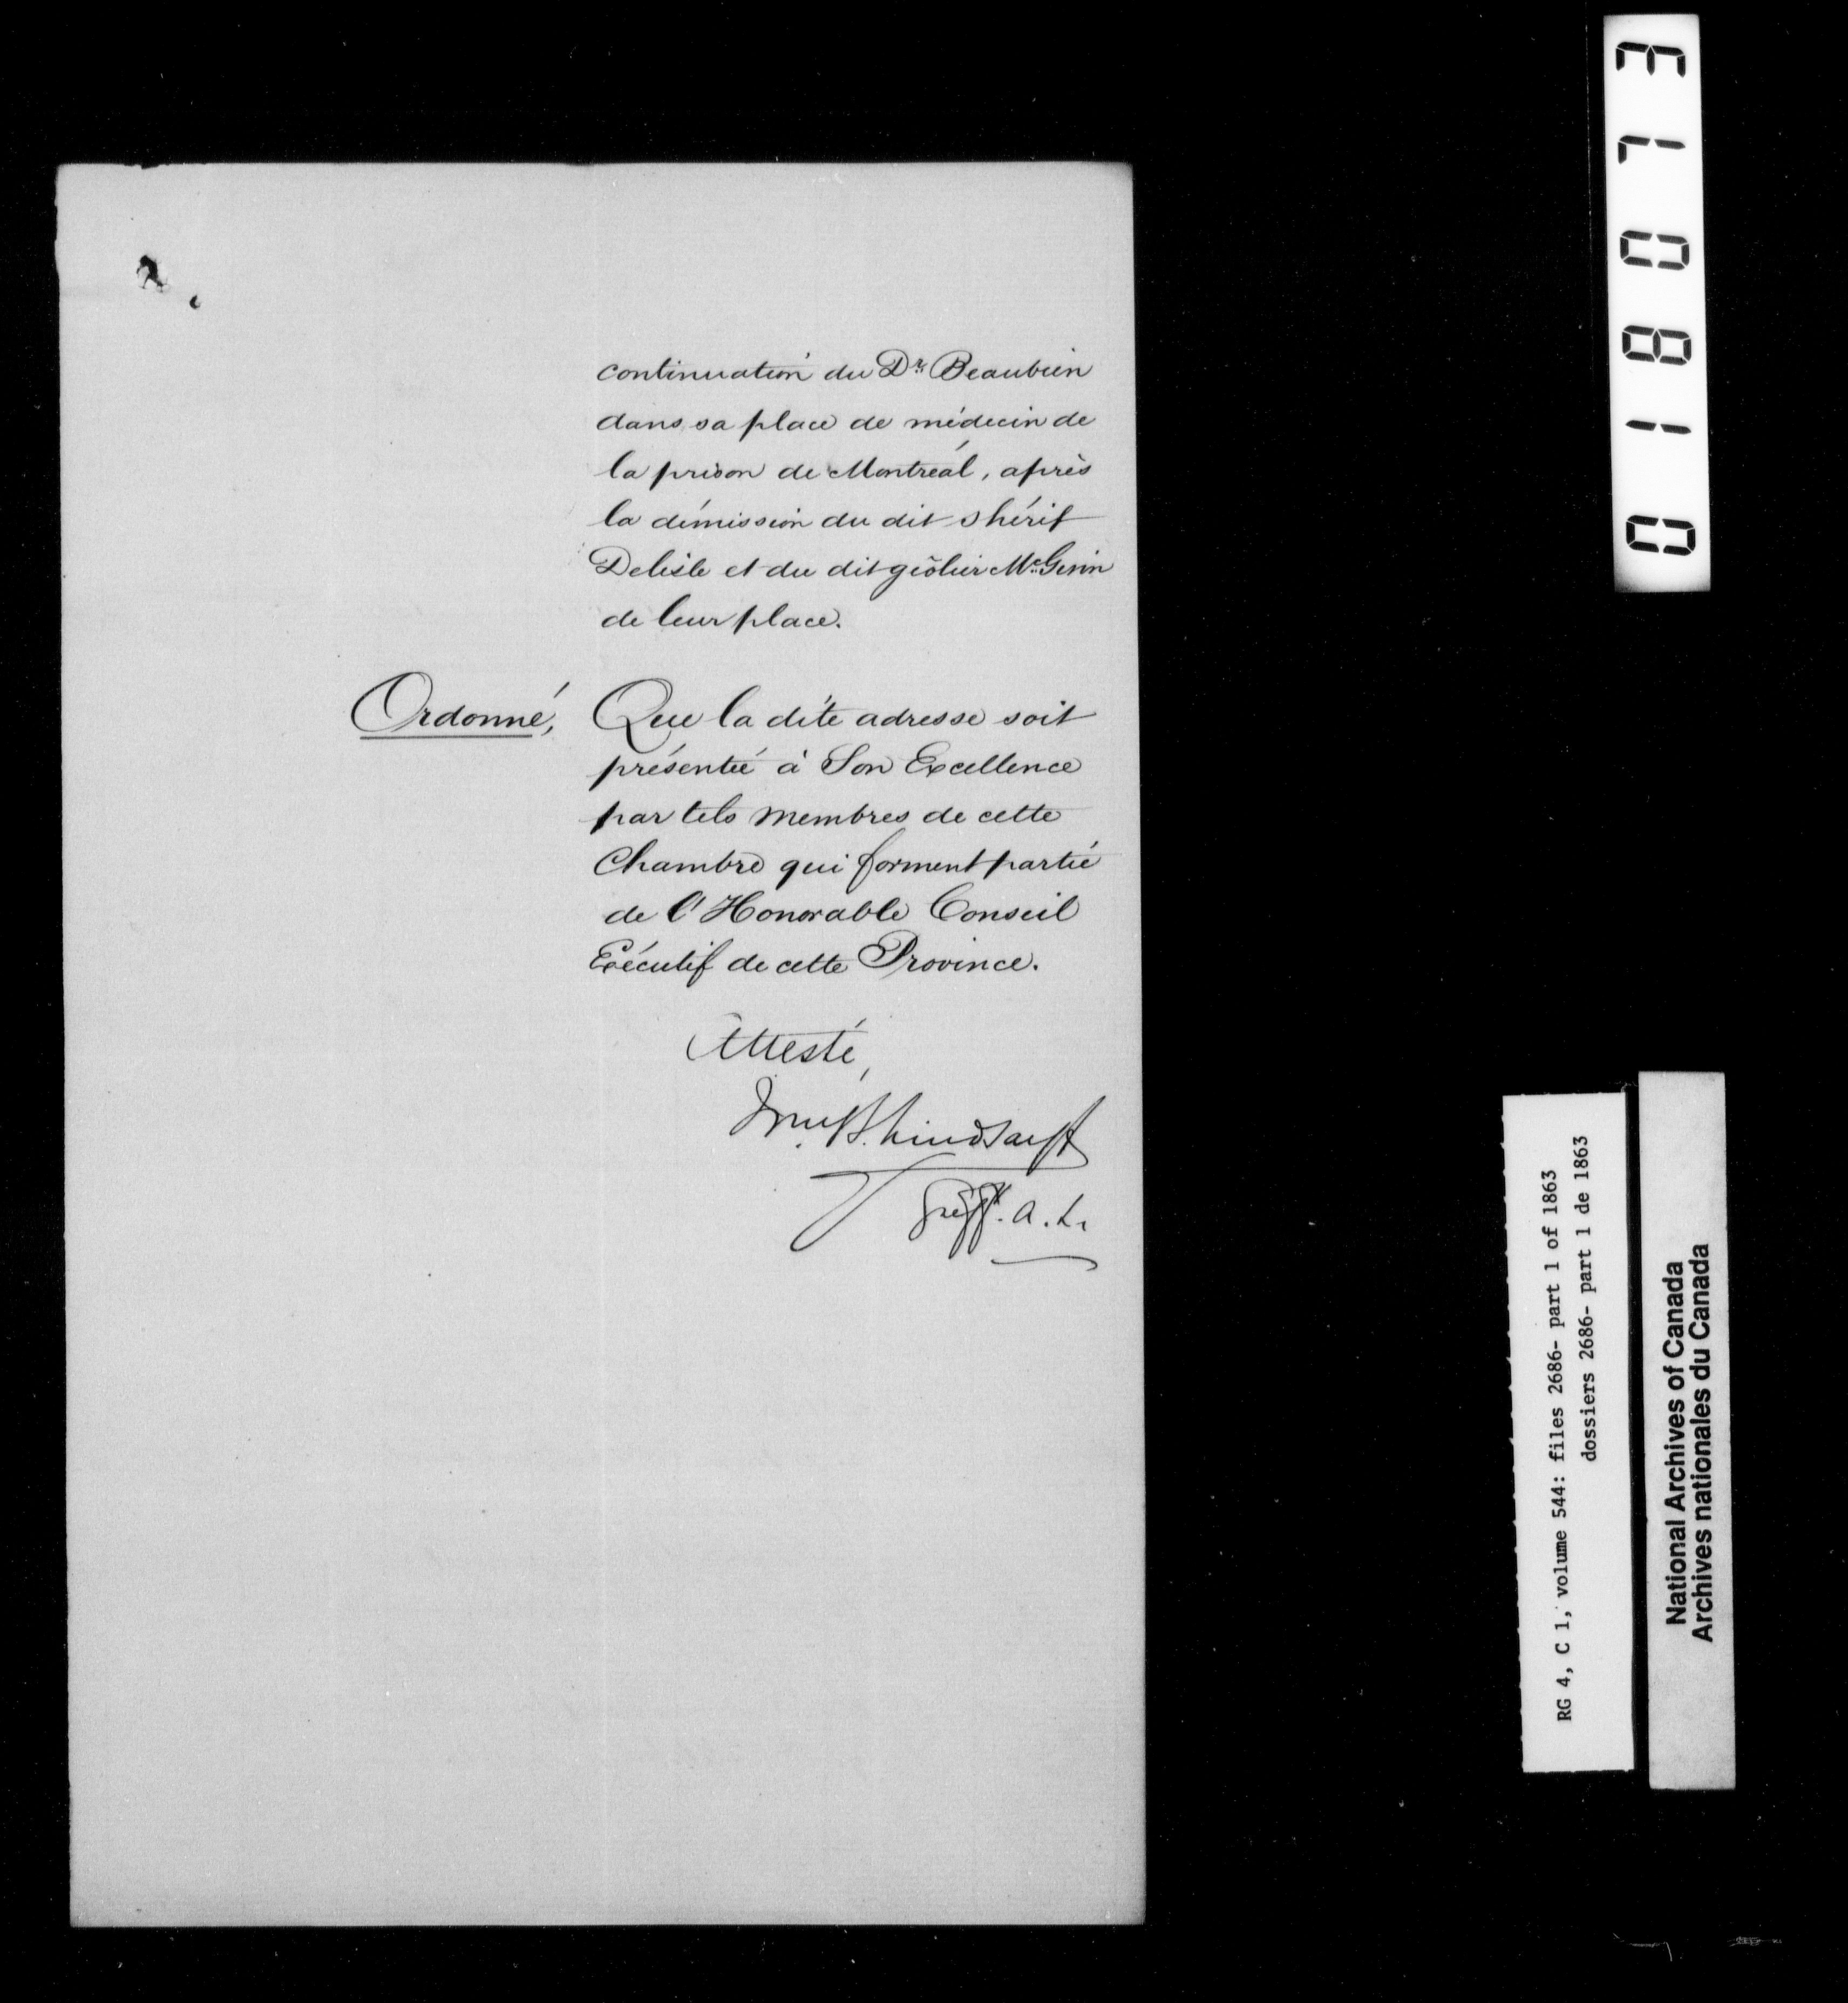 continuation du Dr. Beaubien
dans sa place de médecin de
la prison de Montréal, après
la démission du dit shérif
Delisle et du dit geôlier McGinn
de leur place.
Ordonné, Que la dite adresse soit
présentée à Son Excellence
par tels membres de cette
Chambre qui forment partie
de l'Honorable Conseil
Exécutif de cette Province.
Attesté,
Wm. B. Lindsay
Greff. A. L.
018073
RG 4, C 1, volume 544: files 2686- part 1 of 1863
dossiers 2686- part 1 de 1863
National Archives of Canada
Archives nationales du Canada